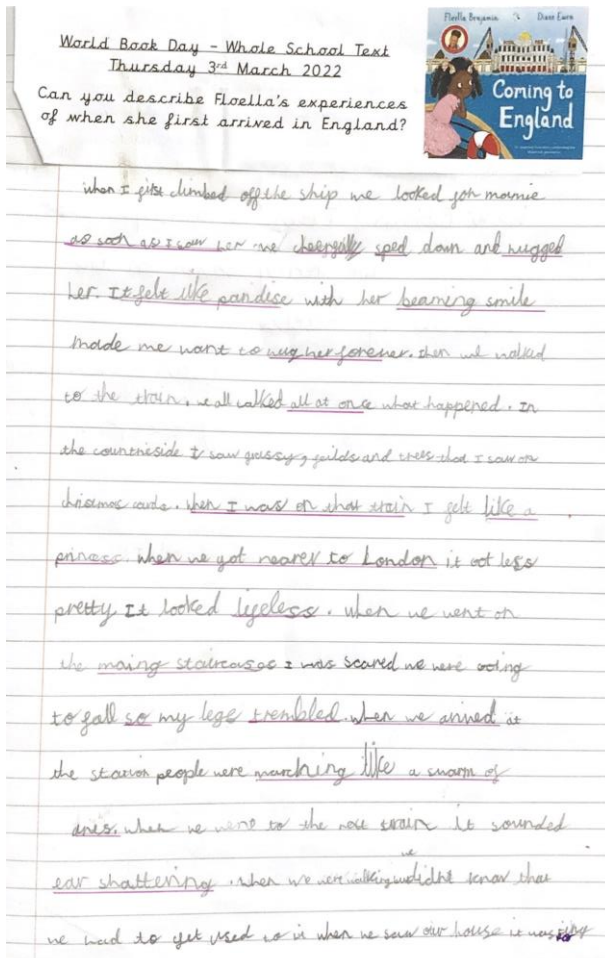 World Book Day – Whole School Text
Thursday 3rd March 2022
Can you describe Floella's experiences
of when she first arrived in England?
Floella Benjamin Diane Ewen
Coming to
England
when I first climbed off the ship we looked foh marmie
as soon as I saw her we cheergally sped down and hugged
her. It felt like paridise with her beaming smile
made me want to hug her forever. then we walked
to the train. we all talked all at once what happened. In
the countrieside I saw grassy feilds and trees that I saw on
christmas cards. when I was on that train I felt like a
princess. when we got nearer to London it got less
pretty It looked lifeless. when we went on
the moving staircases I was scared we were going
to fall so my legs trembled. when we arrived at
the station people were marching like a swarm of
ants. when we went to the next train it sounded
ear shattering. when we were walking we didnt know that
we had to get used to it when we saw our house it was